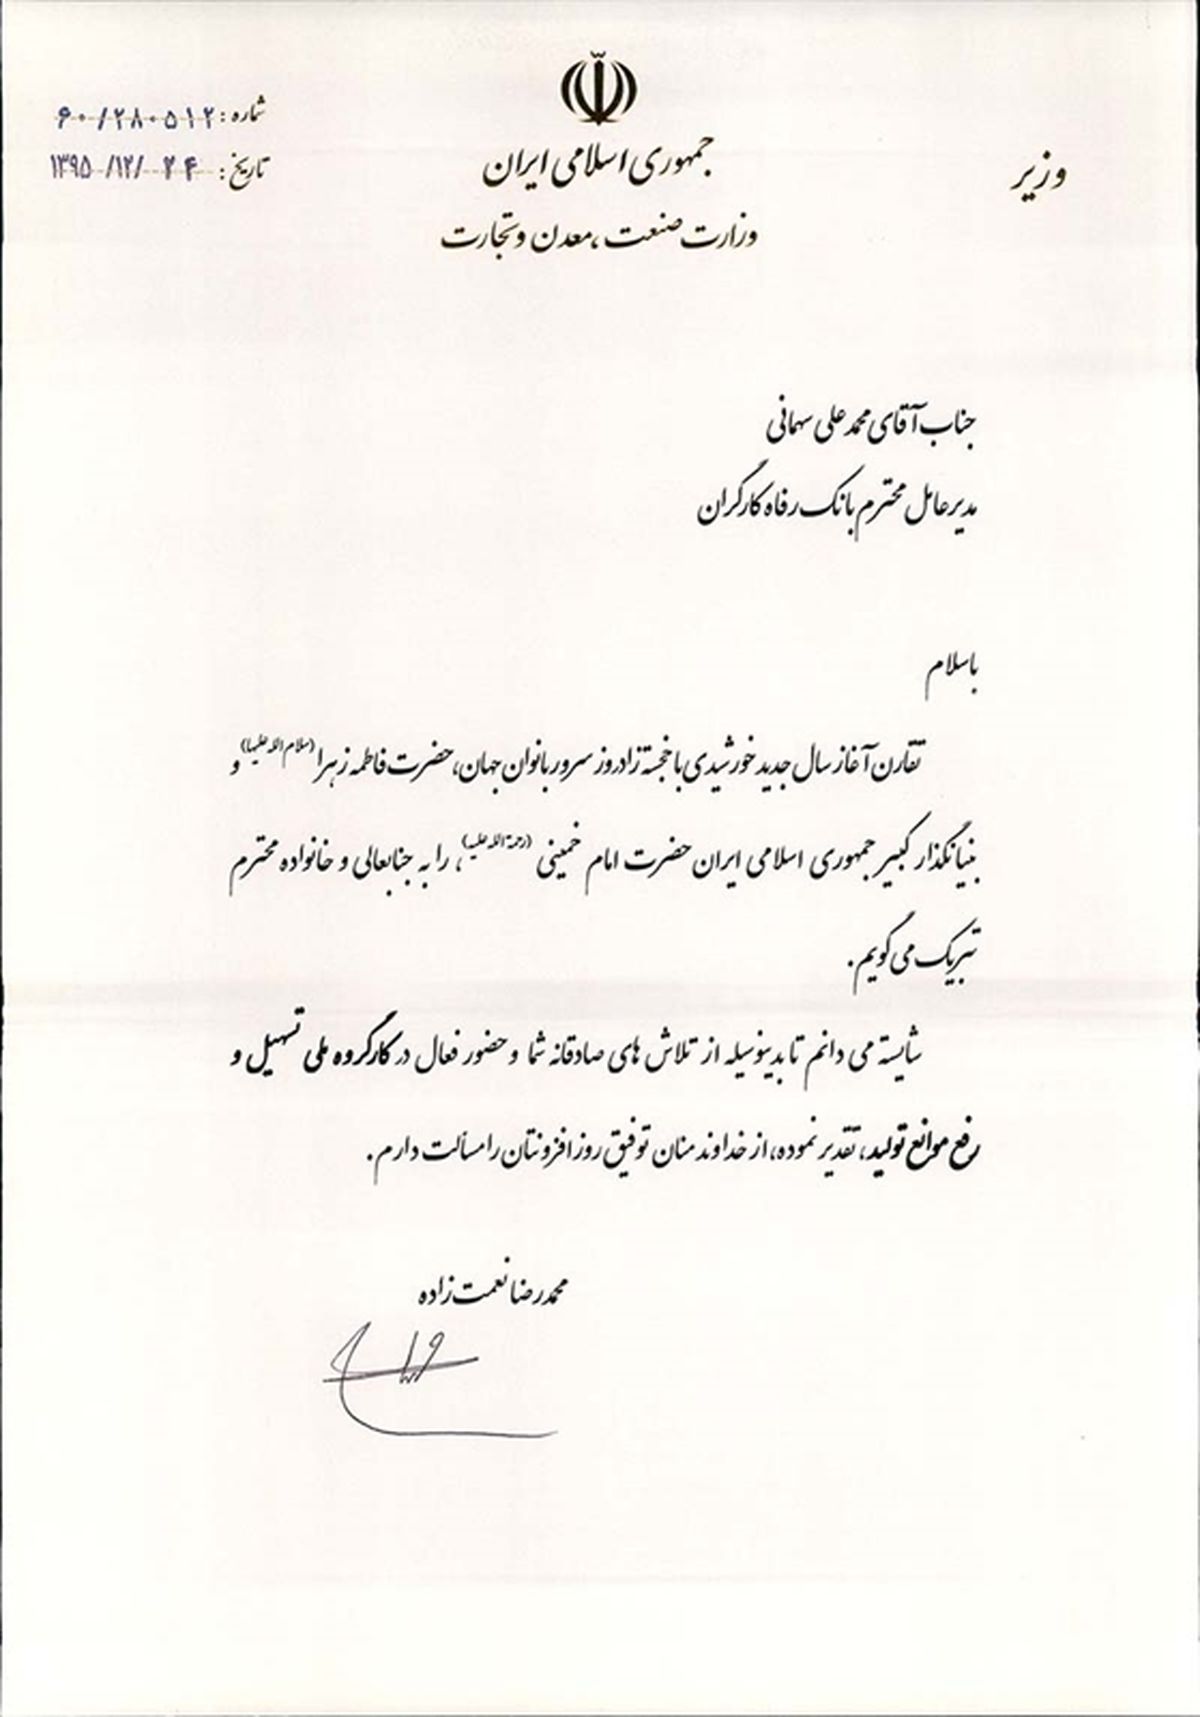 شماره: ۶۰/۲۸۰۵۱۲
تاریخ: ۱۳۹۵/۱۲/۲۴
وزیر
جمهوری اسلامی ایران
وزارت صنعت، معدن و تجارت
جناب آقای محمد علی سهمانی
مدیرعامل محترم بانک رفاه کارگران
باسلام
تقارن آغاز سال جدید خورشیدی با خجسته زادروز سرور بانوان جهان، حضرت فاطمه زهرا (سلام الله علیها) و
بنیانگذار کبیر جمهوری اسلامی ایران حضرت امام خمینی (رحمة الله علیه)، را به جنابعالی و خانواده محترم
تبریک می گویم.
شایسته می دانم تا بدینوسیله از تلاش های صادقانه شما و حضور فعال در کارگروه ملی تسهیل و
رفع موانع تولید، تقدیر نموده، از خداوند منان توفیق روز افزونتان را مسألت دارم.
محمدرضا نعمت زاده